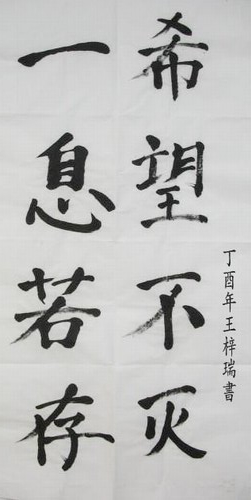 一息若存
希望不灭
丁酉年王梓瑞書